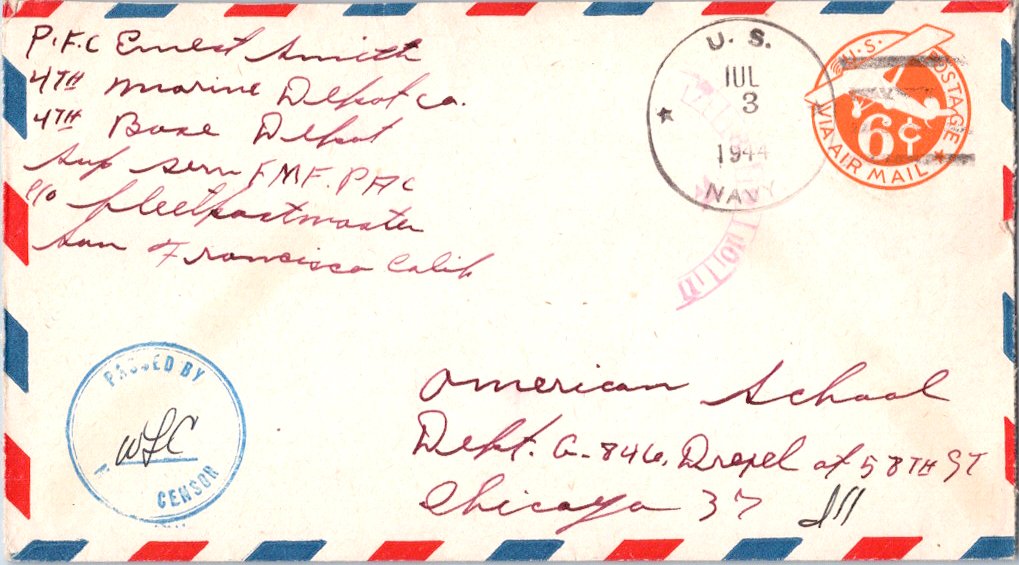 P.F.C Ernest Smith
4TH Marine Depot co.
4TH Base Depot
Sup Serv FMF. PAC
c/o fleetpostmaster
San Francisco Calif
U. S.
JUL
3
1944
NAVY
U.S. POSTAGE
6¢
VIA AIR MAIL
PASSED BY
WLC
CENSOR
American School
Dept. G-846, Drexel at 58TH ST
Chicago 37 Ill